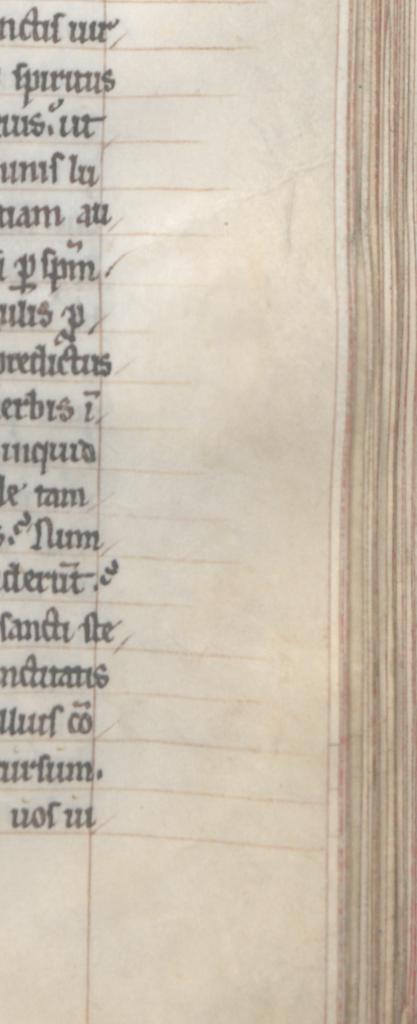 nctiſ uir
ſpiritus
tuis. ut
uniſ lu
tiam au
i ꝑ ſpm̄
uilis ꝓ
predictus
erbis ī
inquid
le tam
s. Num
derūt.
ſancti ſte
nctitatis
lluiſ cō
curſum.
uoſ iu